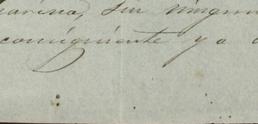 marina, sin ningun
consiguiente ya